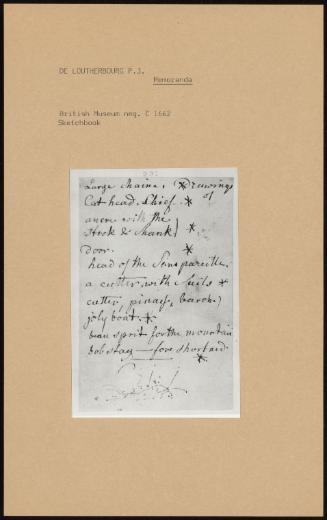 DE LOUTHERBOURG P.J.
Memoranda
British Museum neg. C 1662
Sketchbook
Large chaine, * Drawings
Cat head. Chief * of
ancre with the
Stock & Shank } *
Door. *
head of the Sans pareille.
a cutter with Sails *
cutter, pinays, barch. }
joly boat. *
beau sprit for the mountain
bob stay — fore shortned
*